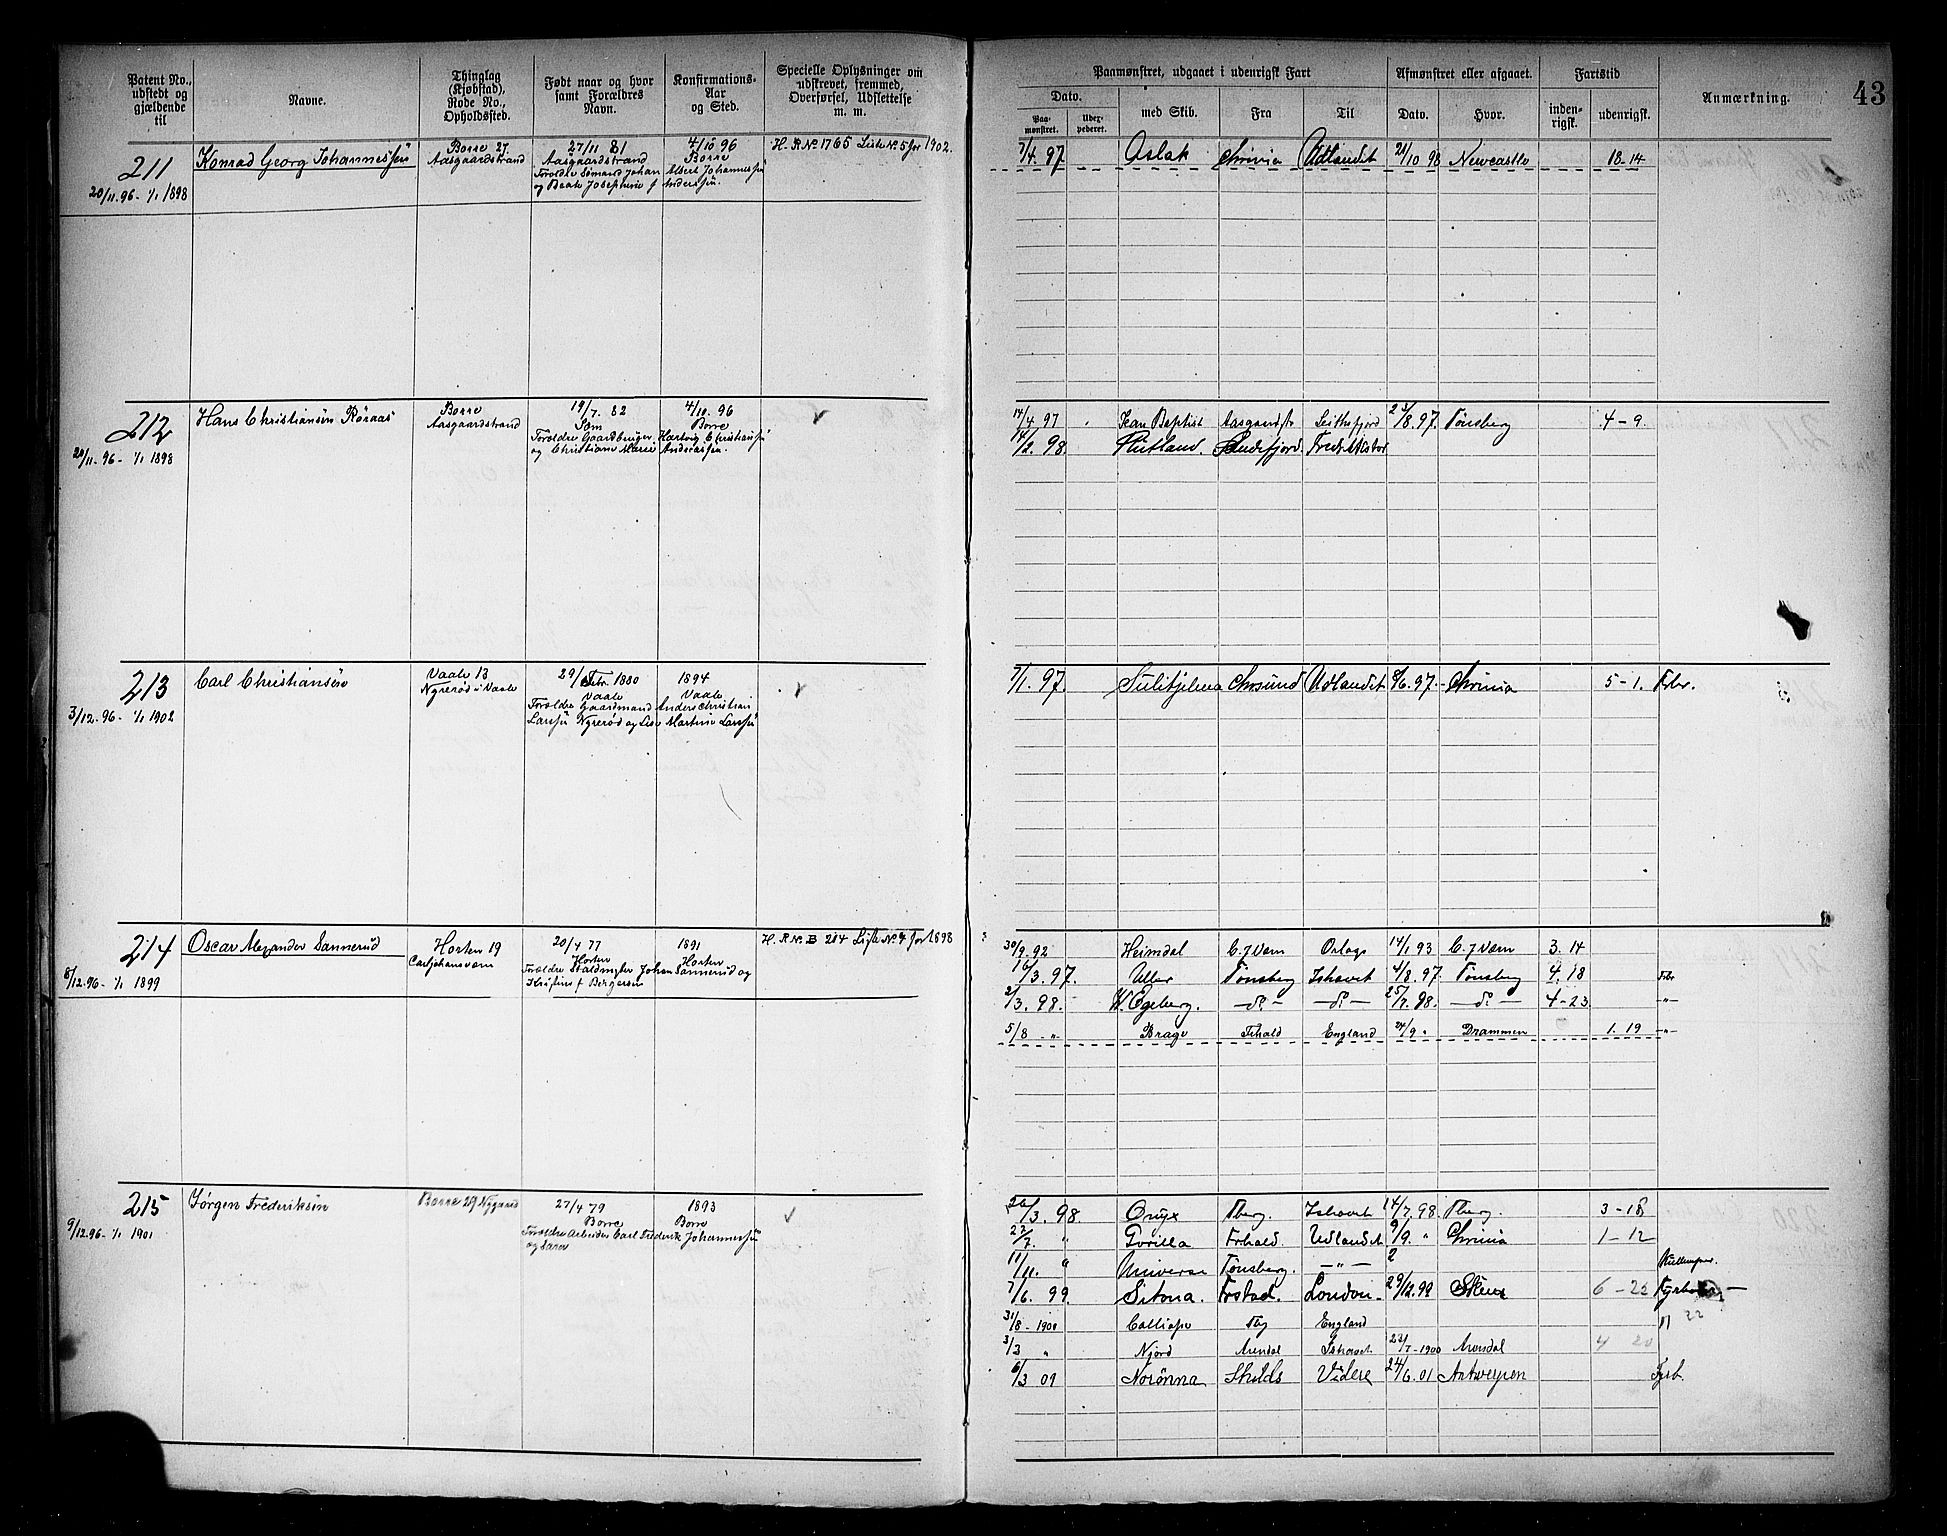 Patent No., udstedt og gjældende til
Navne.
Thinglag (Kjøbstad), Rode No., Opholdssted.
Født naar og hvor samt Forældres Navn.
Konfirmations-Aar og Sted.
Specielle Oplysninger om udskrevet, fremmed, Overførsel, Udslettelse m. m.
Paamønstret, udgaaet i udenrigsk Fart
Afmønstret eller afgaaet.
Fartstid
Anmærkning.
43
Dato.
Paa-mønstret.
med Skib.
Fra
Til
Dato.
Hvor.
inden-rigsk.
udenrigsk.
211
20/11.96 - 1/1 1898
Konrad Georg Johannessen
Borre 27.
Aasgaardstrand
27/11 81
Aasgaardstrand
4/10 96
Borre
Forældre Sømand Johan Albert Johannessen
og Beate Josephine f Anderssen.
H. R No 1765 Liste No 5 for 1902.
7/4. 97. Aslak Chrinia Udlandet 21/10 98 Newcastle 18-14
212
20/11.96 - 1/1 1898
Hans Christiansen Røraas
Borre
Aasgaardstrand
19/7. 82
Sem
4/10. 96
Borre
Forældre Gaardbruger Hartvig Christiansen
og Christiane Marie Andreassen.
14/4 97 Jean Baptist Aasgaardstr Leithsfjord 23/8.97. Tønsberg 4-9.
14/2. 98. Rutland. Sandefjord.
213
3/12.96 - 1/1 1902
Carl Christiansen
Vaale 13
Nyrerød i Vaale
29/ 1880
Vaale
1894
Vaale
Forældre Gaardmand Anders Christian
Larssen Nyrerød og Lise Martine Larssen
7/1. 97. Sulitjelma Chrsund Udlandet 8/6.97. Chrinia 5-1. Fbr.
214
8/12.96 - 1/1 1899
Oscar Alexander Sannerud
Horten 19
Carljohansværn
20/4 77
Horten
1891
Horten
Forældre Staldmgter Johan Sannerud og
Kristine f Bergersen
H. R No. B 214 Liste No. 7 for 1898
30/9.92 Heimdal C. J Værn Orlogs 14/1 93 C. J Værn 3. 14
16/3. 97. Uller Tønsberg Ishavet 4/8.97. Tønsberg 4. 18 Fbr
2/3. 98. W. Egeberg. — do — — do — 25/7. 98. — do — 4-23 -"-
5/8 -"- Brage Frhald England 24/9 " Drammen 1. 19 -"-
215
9/12.96 - 1/1 1901
Jørgen Frederiksen
Borre 29 Nygaard
27/4 79
Borre
1893
Borre
Forældre Arbeider Carl Frederik Johannessen
og Sara
20/3. 98. Onyx Tberg. Ishavet 14/7.98. Tberg. 3-18
22/7. " Gorilla Frhald. Udlandet 9/9. " Chrinia 1-12
11/11. " Universe Tønsberg. — " —
7/6. 99. Sitona. Frstad. London. 29/12.99 Skien 6-22
31/8-1900 Calliope Tbg England 22
3/3 " Njord Arendal Ishavet 23/7-1900 Arendal 4 20
6/3 01 Norønna Videre 24/6.01 Antwerpen Fyrb.